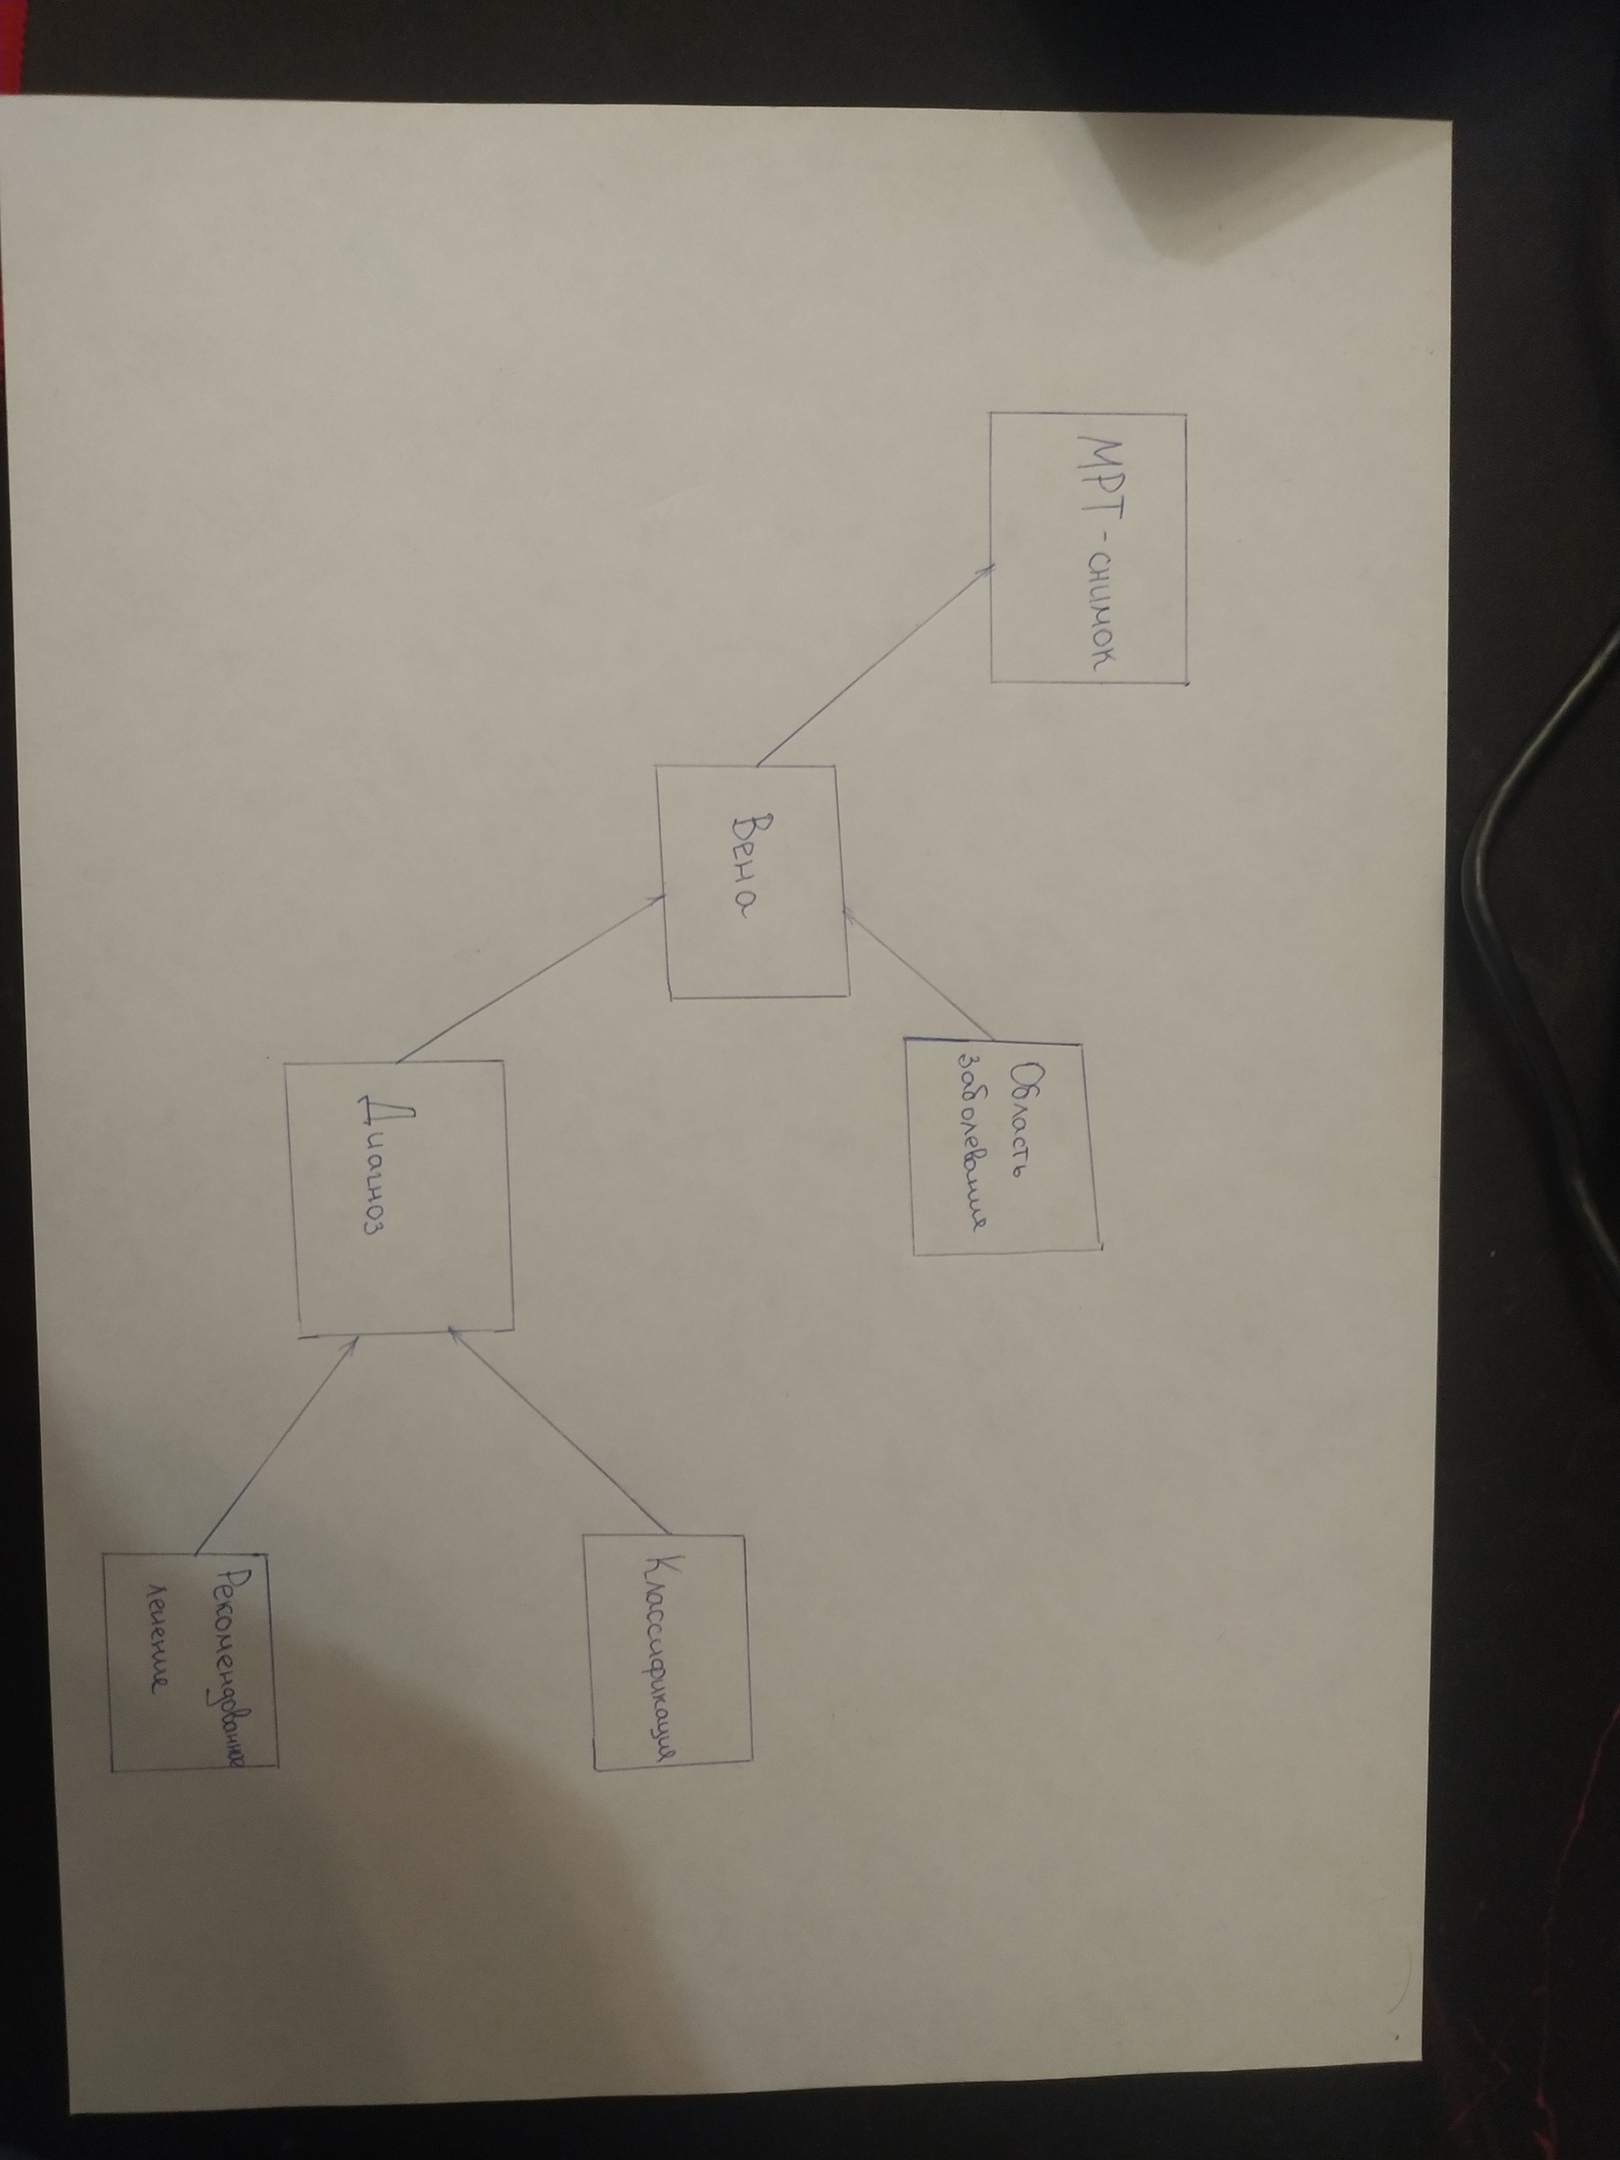 МРТ-снимок
Область
заболевания
Вена
Классификация
Диагноз
Рекомендованное
лечение